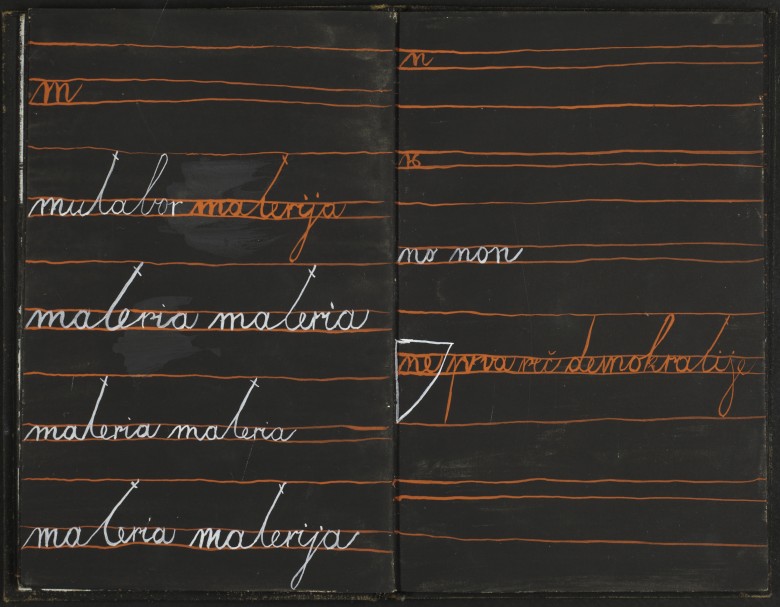 m
mutabor materija
materia materia
materia materia
materia materija
n
no non
ne prva reč demokratije